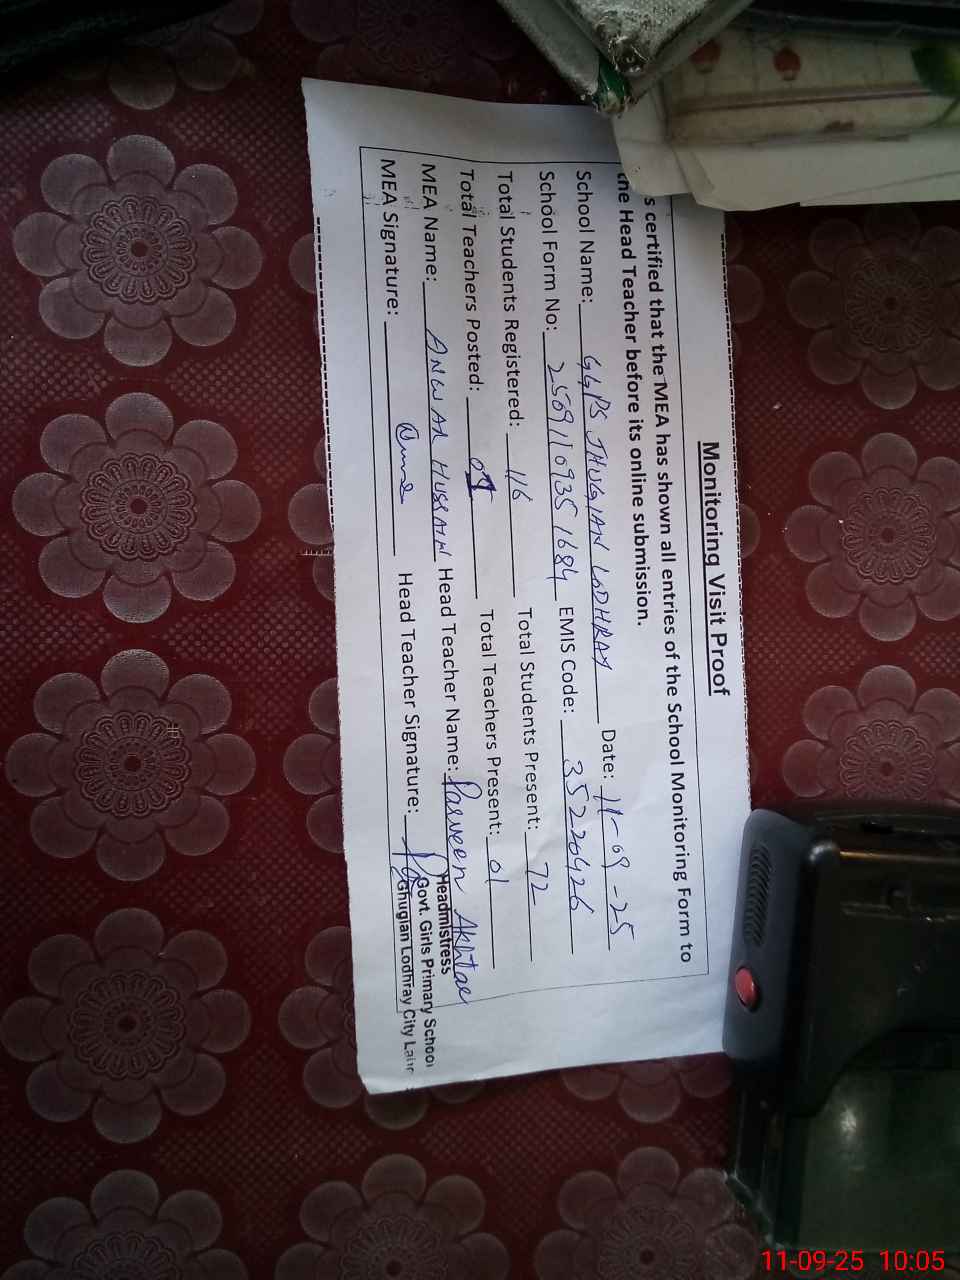 Monitoring Visit Proof
s certified that the MEA has shown all entries of the School Monitoring Form to
the Head Teacher before its online submission.
School Name: GGPS JHUGIAN LODHRAY Date: 11-09-25
School Form No: 25091109351684 EMIS Code: 35220426
Total Students Registered: 116 Total Students Present: 72
Total Teachers Posted: Total Teachers Present: 01
MEA Name: ANWAR HUSSAIN Head Teacher Name: Parveen Akhtar
MEA Signature: Head Teacher Signature:
Headmistress
Govt. Girls Primary School
Ghugian Lodhray City
11-09-25 10:05